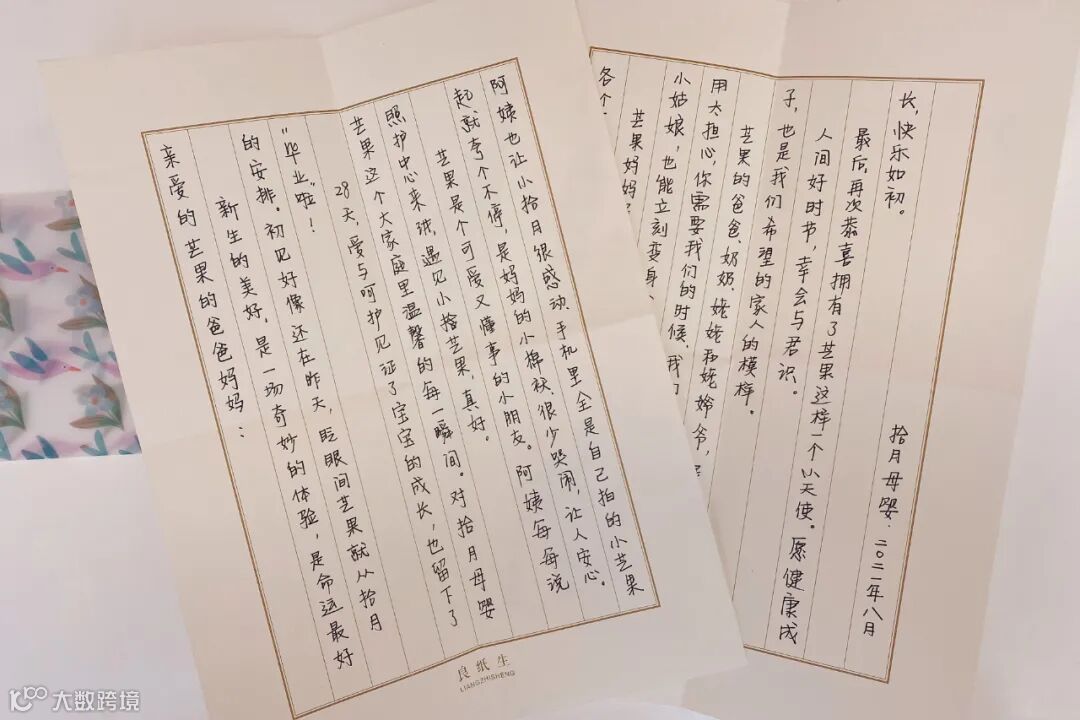 亲爱的芒果的爸爸妈妈：
新生的美好，是一场奇妙的体验，是命运最好
的安排。初见好像还在昨天，眨眼间芒果就从拾月
“毕业啦”！
28天，爱与呵护见证了宝宝的成长，也留下了
芒果这个大家庭里温馨的每一瞬间。对拾月母婴
照护中心来讲，遇见小拾芒果，真好。
芒果是个可爱又懂事的小朋友。阿姨每每说
起，就夸个不停，是妈妈的小棉袄，很少哭闹，让人安心。
阿姨也让小拾月很感动，手机里全是自己拍的小芒果
良纸生
LIANGZHISHENG
各个
芒果妈妈
小姑娘，也能立刻变身、
用太担心，你需要我们的时候，我
芒果的爸爸、奶奶、姥姥和姥爷爷，
子，也是我们希望的家人的模样。
人间好时节，幸会与君识。
最后，再次恭喜拥有了芒果这样一个小天使。愿健康成
长，快乐如初。
拾月母婴·二〇二一年八月
大数跨境